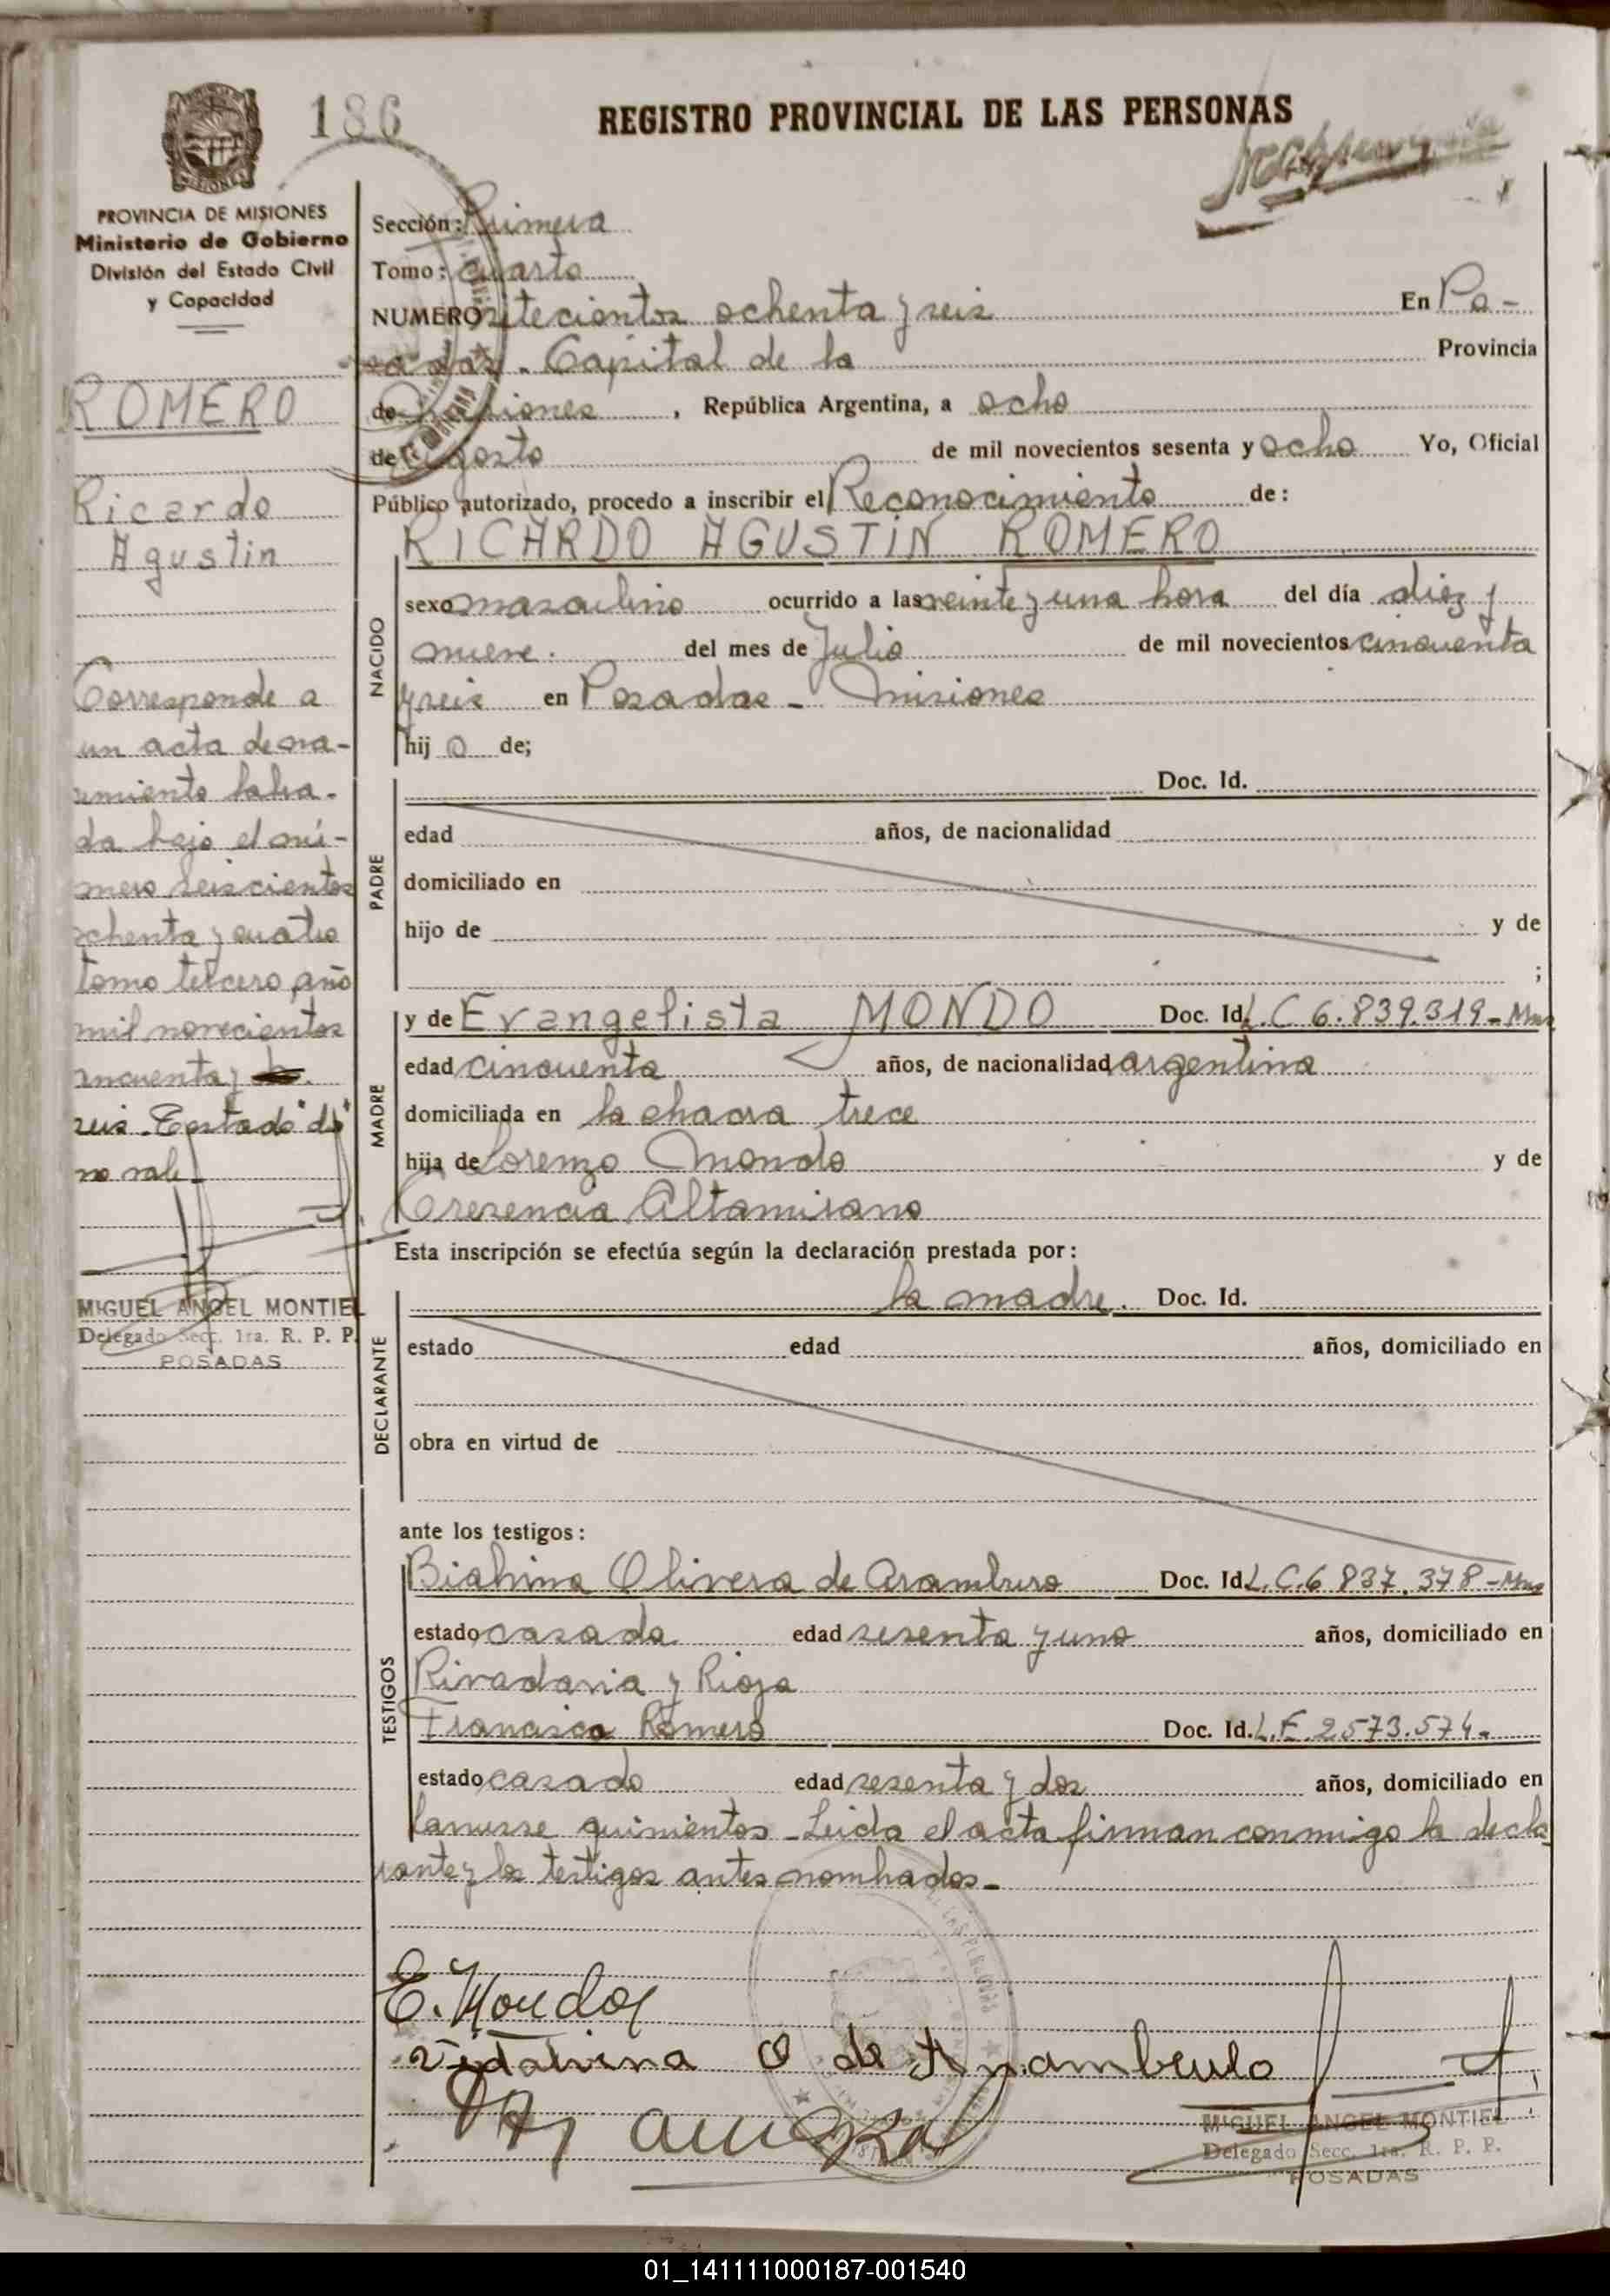 186
REGISTRO PROVINCIAL DE LAS PERSONAS
PROVINCIA DE MISIONES
Ministerio de Gobierno
División del Estado Civil
y Capacidad
ROMERO
Ricardo
Agustin
Corresponde a
un acta de na-
cimiento labra-
da bajo el nú-
mero seiscientos
ochenta y cuatro
tomo tercero, año
mil novecientos
cincuenta y
seis. Testado "do"
no vale
MIGUEL ANGEL MONTIEL
Delegado Secc. 1ra. R. P. P.
POSADAS
Sección: Primera
Tomo: cuarto
NUMERO setecientos ochenta y seis En Po-
sadas. Capital de la Provincia
de Misiones, República Argentina, a ocho
de Agosto de mil novecientos sesenta y ocho Yo, Oficial
Público autorizado, procedo a inscribir el Reconocimiento de:
RICARDO AGUSTIN ROMERO
NACIDO
sexo masculino ocurrido a las veinte y una hora del día diez y
nueve. del mes de Julio de mil novecientos cincuenta
y seis en Posadas - Misiones
hij o de;
PADRE
Doc. Id.
edad años, de nacionalidad
domiciliado en
hijo de y de
;
MADRE
y de Evangelista MONDO Doc. Id. L.C 6.839.319 - Mnes
edad cincuenta años, de nacionalidad argentina
domiciliada en la chacra trece
hija de Lorenzo Mondo y de
Cresencia Altamirano
Esta inscripción se efectúa según la declaración prestada por:
DECLARANTE
la madre. Doc. Id.
estado edad años, domiciliado en
obra en virtud de
ante los testigos:
TESTIGOS
Olivera de Aramburo Doc. Id. L.C.6 837.378 - Mnes
estado casada edad sesenta y uno años, domiciliado en
Rivadavia y Rioja
Francisco Romero Doc. Id. L.E. 2573.574-
estado casado edad sesenta y dos años, domiciliado en
lanusse quinientos - Leida el acta firman conmigo la decla
rante y los testigos antes nombrados -
E. Mondo
Vidalvina O de Aramburo
MIGUEL ANGEL MONTIEL
Delegado Secc. 1ra. R. P. P.
POSADAS
01_141111000187-001540